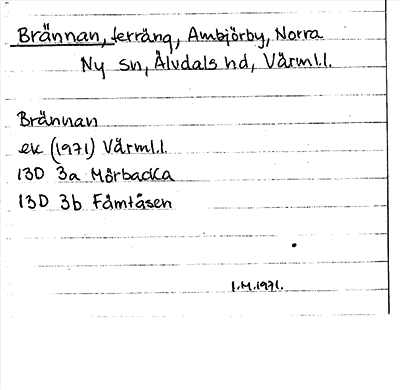 Brännan, terräng, Ambjörby, Norra
Ny sn, Älvdals hd, Värml.l.
Brännan
ek (1971) Värml.l.
13D 3a Mörbacka
13D 3b Fämtåsen
I.M.1971.